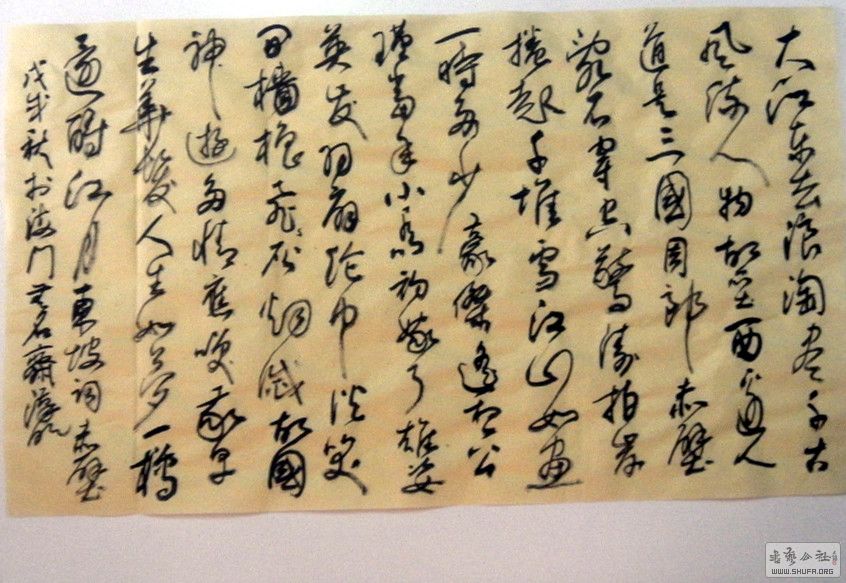 大江东去浪淘尽千古
风流人物故垒西边人
道是三國周郎赤壁
乱石穿空驚涛拍岸
捲起千堆雪江山如画
一時多少豪傑遥想公
瑾當年小乔初嫁了雄姿
英发羽扇纶巾谈笑
间檣櫓飛灰烟滅故國
神遊多情應笑我早
生華髮人生如梦一樽
還酹江月東坡词赤壁
戊戌秋於海门無名齋
書藝公社
WWW.SHUFA.ORG